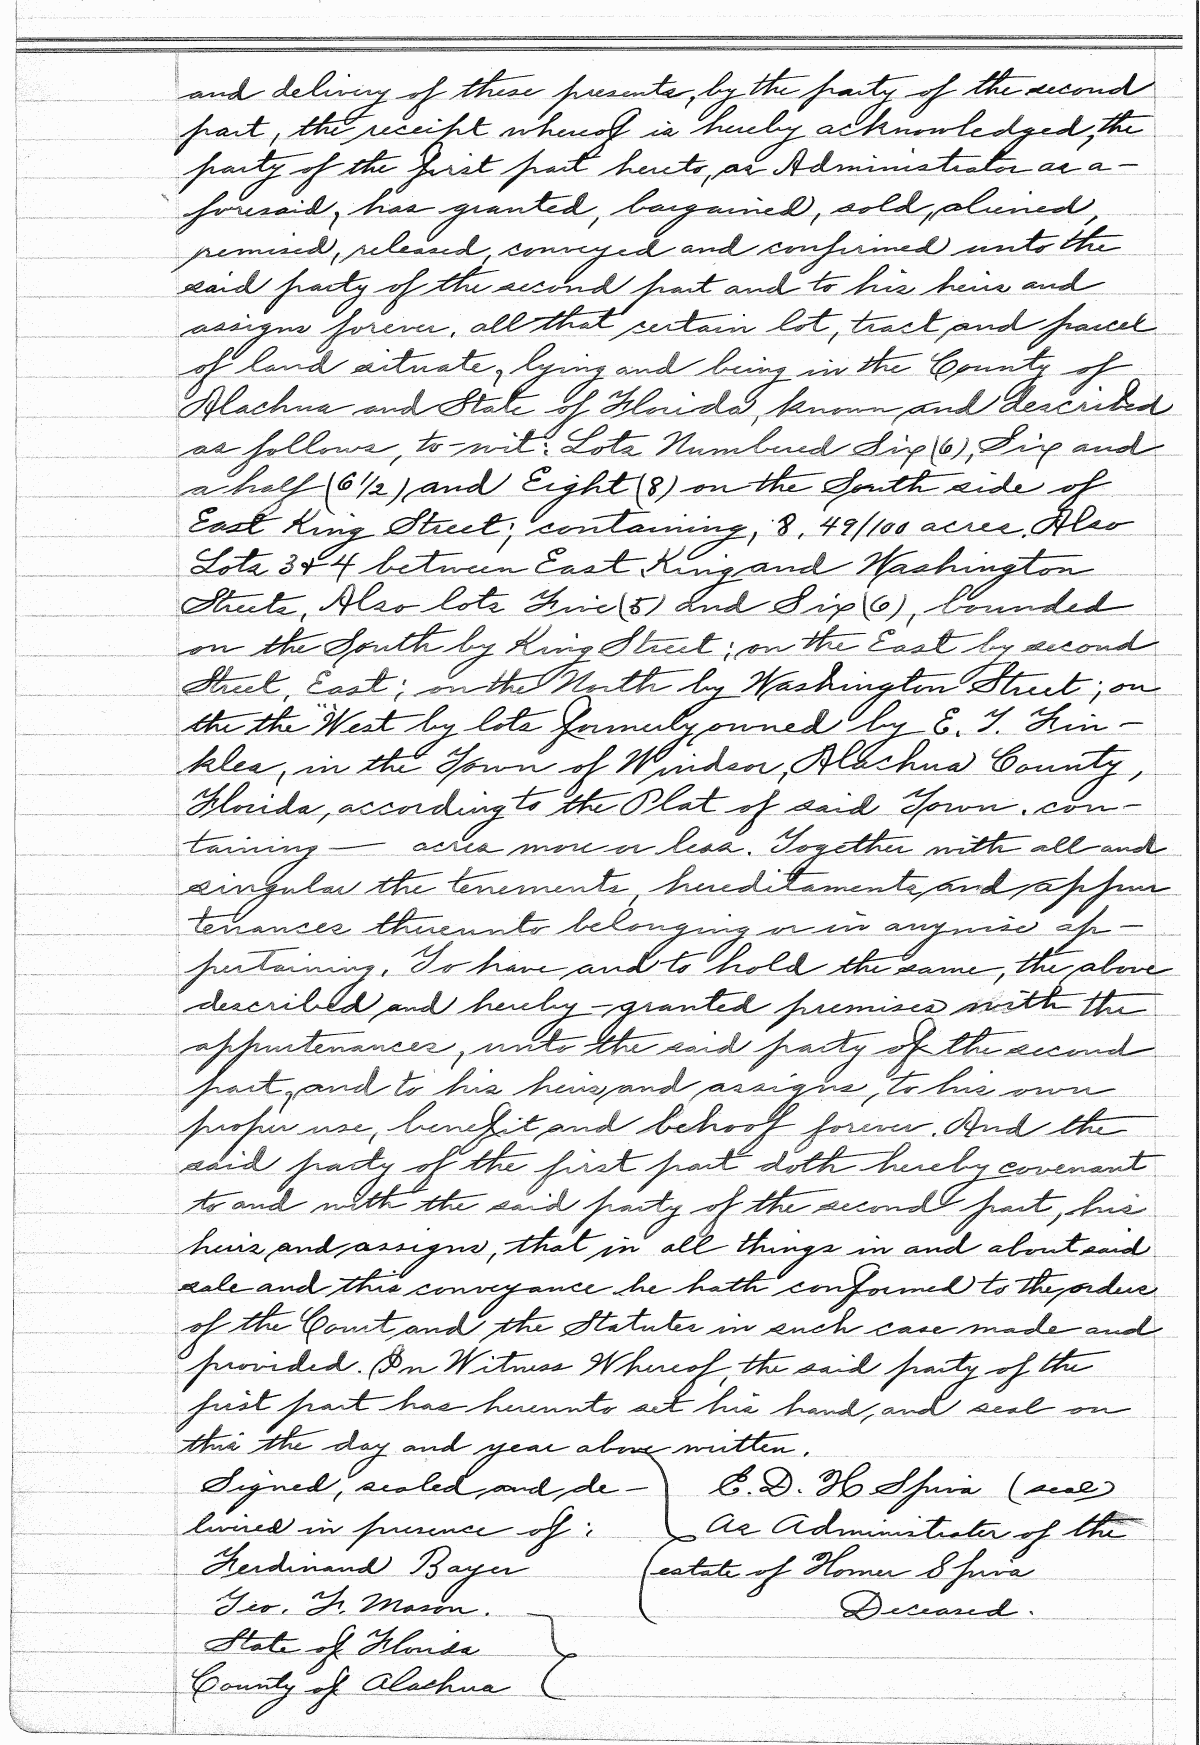 and delivery of these presents, by the party of the second
part, the receipt whereof is hereby acknowledged, the
party of the first part hereto, as Administrator as a-
foresaid, has granted, bargained, sold, aliened,
remised, released, conveyed and confirmed unto the
said party of the second part and to his heirs and
assigns forever, all that certain lot, tract and parcel
of land situate, lying and being in the County of
Alachua and State of Florida, known and described
as follows, to-wit: Lots Numbered Six (6), Six and
a half (6 1/2) and Eight (8) on the South side of
East King Street; containing, 8, 49/100 acres. Also
Lots 3 & 4 between East King and Washington
Streets, Also lots Five (5) and Six (6), bounded
on the South by King Street; on the East by second
Street, East; on the North by Washington Street; on
the the West by lots formerly owned by E. T. Fin-
klea, in the Town of Windsor, Alachua County,
Florida, according to the Plat of said Town. con-
taining — acres more or less. Together with all and
singular the tenements, hereditaments and appur
tenances thereunto belonging or in anywise ap-
pertaining. To have and to hold the same, the above
described and hereby-granted premises with the
appurtenances, unto the said party of the second
part, and to his heirs and assigns, to his own
proper use, benefit and behoof forever. And the
said party of the first part doth hereby covenant
to and with the said party of the second part, his
heirs and assigns, that in all things in and about said
sale and this conveyance he hath conformed to the orders
of the Court and the Statutes in such case made and
provided. In Witness Whereof, the said party of the
first part has hereunto set his hand, and seal on
this the day and year above written.
Signed, sealed and de- E. D. H Spiva (seal)
livered in presence of: As Administrator of the
Ferdinand Bayer estate of Homer Spiva
Geo. F. Mason. Deceased.
State of Florida
County of Alachua